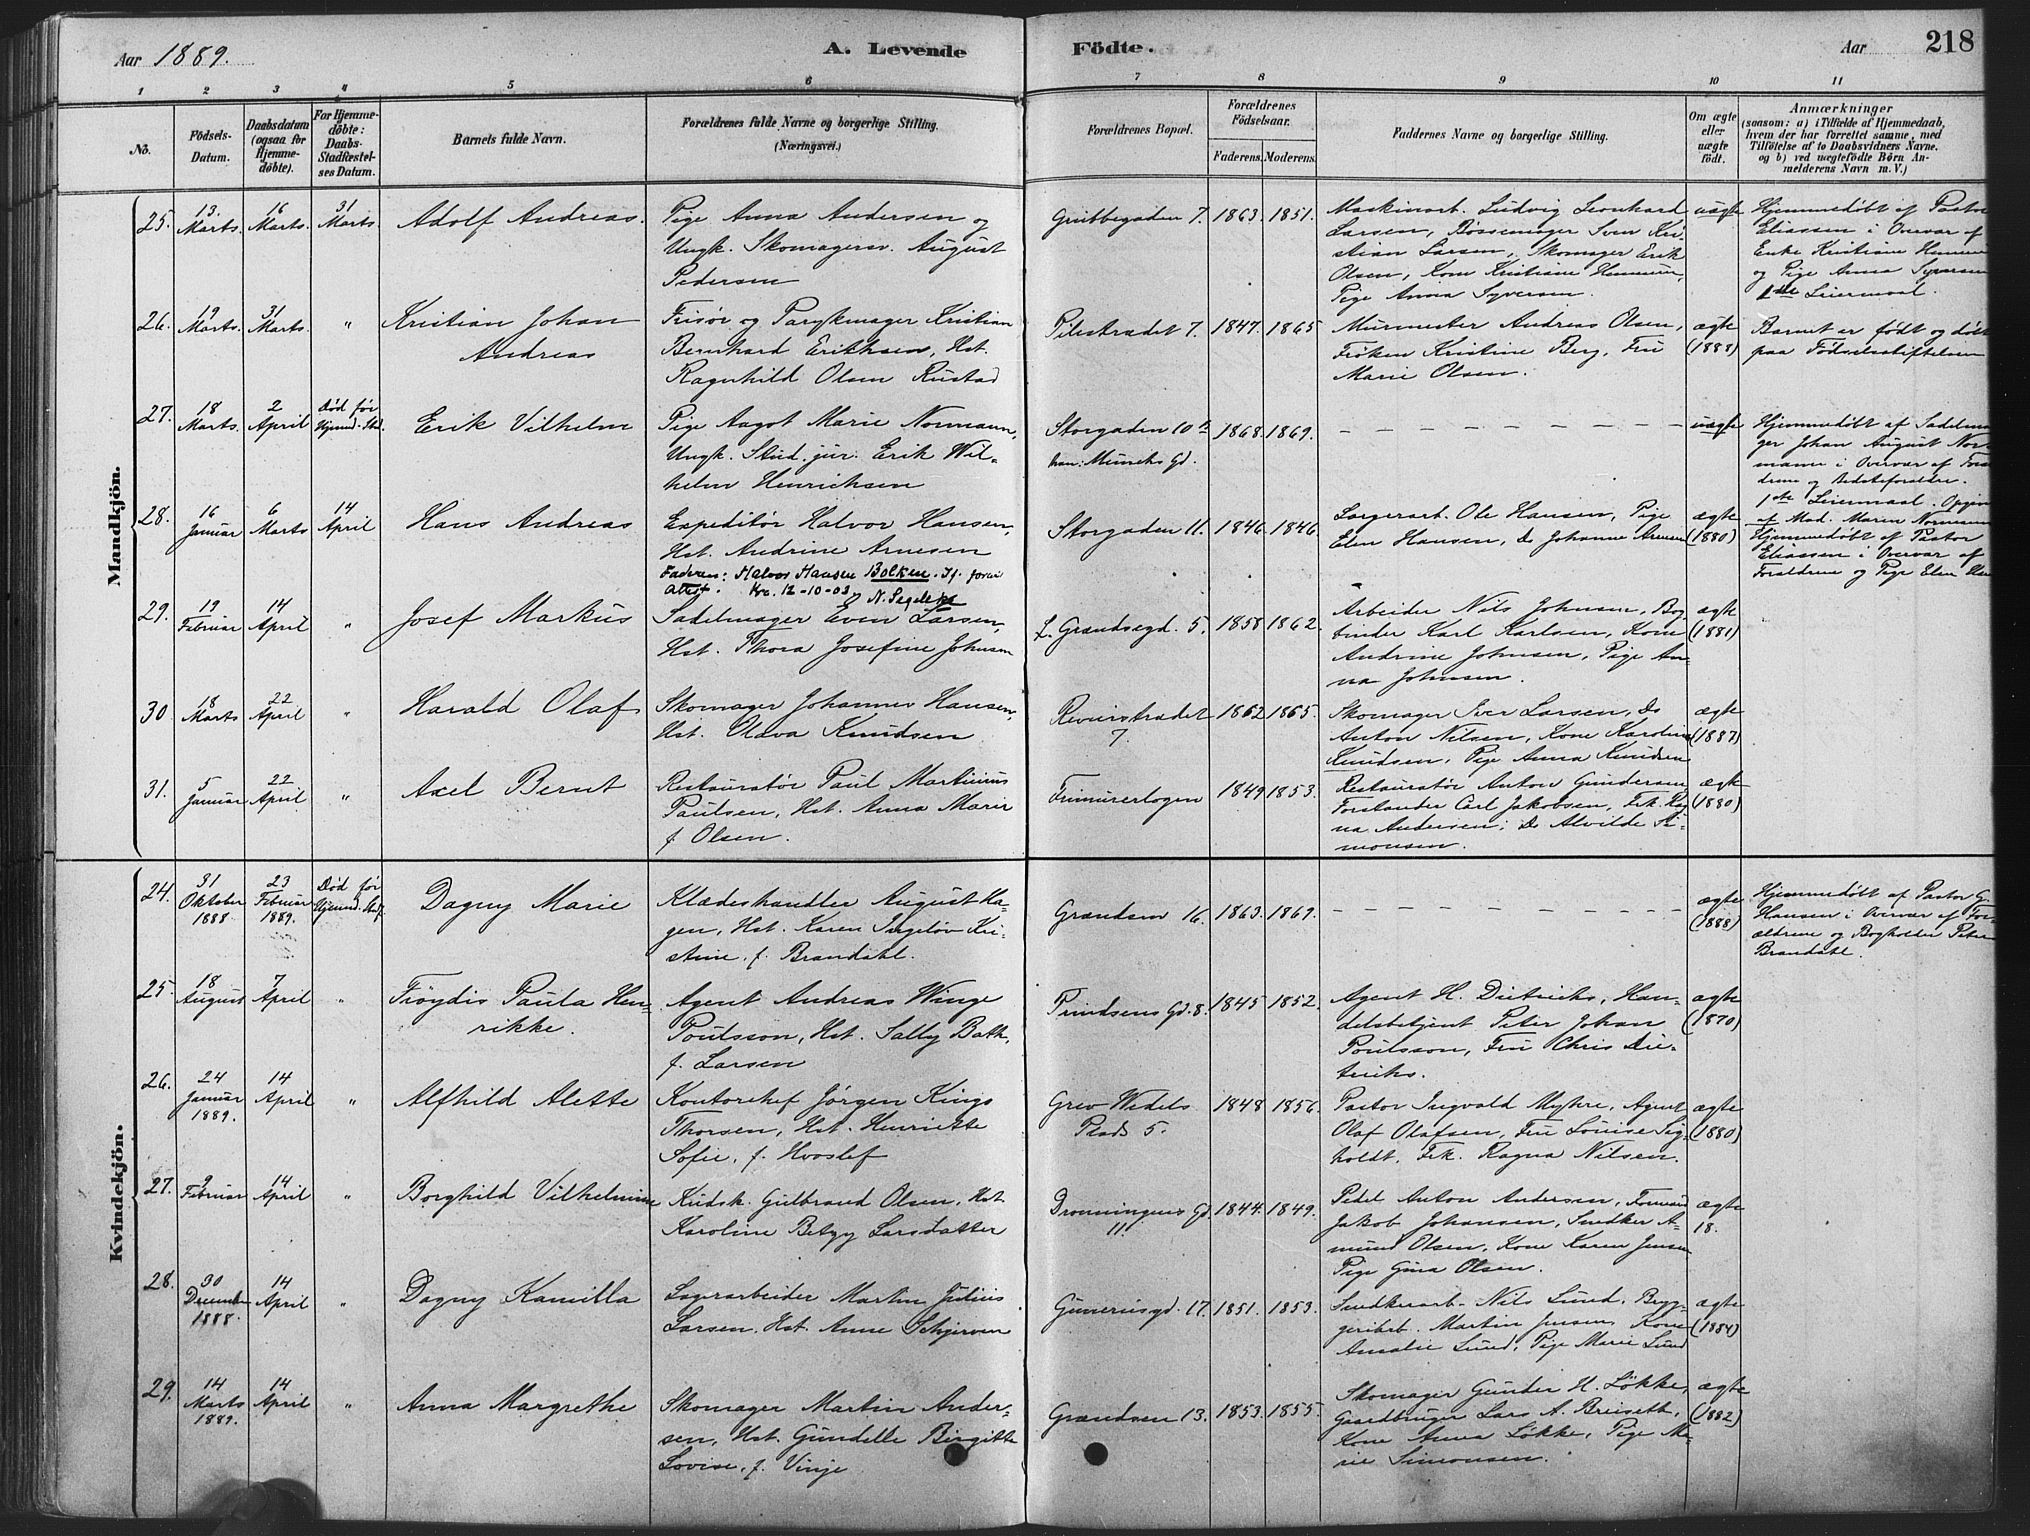 Aar 1889.
A. Levende
Födte.
Aar
218
1 2 3 4 5 6 7 8 9 10 11
No.
Födsels-
Datum.
Daabsdatum
(ogsaa for
Hjemme-
döbte).
For Hjemme-
döbte:
Daabs-
Stadfæstel-
ses Datum.
Barnets fulde Navn.
Forældrenes fulde Navne og borgerlige Stilling.
(Næringsvei.)
Forældrenes Bopæl.
Forældrenes
Födselsaar.
Faderens. Moderens.
Faddernes Navne og borgerlige Stilling.
Om ægte
eller
uægte
födt.
Anmærkninger
(saasom: a) i Tilfælde af Hjemmedaab,
hvem der har forrettet samme, med
Tilföielse af to Daabsvidners Navne.
og b) ved uægtefödte Börn An-
melderens Navn m. V.)
Mandkjön.
25. 13. Marts. 16 Marts. 31 Marts. Adolf Andreas.
Pige Anna Andersen og
Ungk. Skomagersv. August
Pedersen
Grubbegaden 7. 1863. 1851.
Maskinarb. Ludvig Leonhard
Larsen, Bøssemager Sven Kri-
stian Larsen, Skomager Erik
Olsen, Kone Kristiane
Pige Anna Syversen.
uægte
Hjemmedøbt af Pastor
Eliassen i Overvær af
Enke Kristiane
og Pige Anna Syversen
1ste Leiermaal.
26. 19 Marts. 31 Marts. " Kristian Johan
Andreas
Frisør og Parykmager Kristian
Bernhard Erikhsen, Hst.
Ragnhild Olsen Rustad
Pilestrædet 7. 1847. 1865
Murmester Andreas Olsen,
Frøken Kristine Berg, Fru
Marie Olsen.
ægte
(1888)
Barnet er født og døbt
paa Fødselsstiftelsen
27. 18 Marts. 2 April Død før
Hjemmd. Stad. Erik Vilhelm
Pige Aagot Marie Normann,
Ungk. Stud. jur. Erik Wil-
helm Henrichsen
Storgaden 10 b
han: Munchs Gd. 1868. 1869.
uægte
Hjemmedøbt af Sadelma-
ger Johan August Nor-
mann i Overvær af Foræl-
drene og Bedsteforældre.
1ste Leiermaal. Opgivet
af Mad. Maren Normann
28. 16 Januar 6 Marts 14 April Hans Andreas
Expeditør Halvor Hansen,
Hst. Andrine Arnesen
Faderen: Halvor Hansen Bolken.
Attest. Kra. 12-10-03
Storgaden 11. 1846. 1846.
Lagerarb. Ole Hansen, Pige
Elen Hansen, Do Johanne Arnesen
ægte
(1880)
Hjemmedøbt af Pastor
Eliassen i Overvær af
Forældrene og Pige Elen
29. 19 Februar 14 April " Josef Markus
Sadelmager Even Larsen,
Hst. Thora Josefine Johnsen
L. Grændsegd. 5. 1858 1862.
Arbeider Nils Johnsen, Bog-
binder Karl Karlsen, Kone
Andrine Johnsen, Pige An-
na Johnsen.
ægte
(1881)
30. 18 Marts 22 April " Harald Olaf
Skomager Johannes Hansen,
Hst. Olava Knudsen
Revierstrædet
7. 1862 1865.
Skomager Iver Larsen, Do
Anton Nilsen, Kone Karoline
Knudsen, Pige Anna Knudsen
ægte
(1887)
31. 5 Januar 22 April " Axel Bernt
Restauratør Paul Martinius
Paulsen, Hst. Anna Marie
f. Olsen.
Frimurerlogen 1849 1853.
Restauratør Anton Gundersen
Forstander Carl Jakobsen, Frk. Rag-
na Andersen, Do Alvilde Si-
monsen.
ægte
(1880)
Kvindekjön.
24. 31 Oktober 1888. 23 Februar 1889. Død før
Hjemmd. Stad. Dagny Marie
Klædeshandler August Ha-
gen, Hst. Karen Ingeløv Kri-
stine, f. Brandahl.
Grændsen 16. 1863. 1869.
ægte
(1888)
Hjemmedøbt af Pastor G.
Hansen i Overvær af For-
ældrene og Bogholder Peter
Brandahl.
25. 18 August 7 April " Frøydis Paula Hen-
rikke.
Agent Andreas Winge
Poulsson, Hst. Sally Bath,
f. Larsen
Prindsens Gd. 8. 1845 1852.
Agent H. Dietrichs, Han-
delsbetjent Peter Johan
Poulsson, Fru Chris Die-
trichs.
ægte
(1870)
26. 24 Januar 1889. 14 April " Alfhild Alette
Kontorchef Jørgen Kings
Thorsen, Hst. Henriette
Sofie, f. Hvoslef
Grev Wedels
Plads 5. 1848 1856.
Pastor Ingvald Myhre, Agent
Olaf Olafsen, Fru Louise Sig-
holdt, Frk. Ragna Nilsen.
ægte
(1880)
27. 2 Februar 14 April " Borghild Vilhelmine
Kudsk Gulbrand Olsen, Hst.
Karoline Betzy Larsdatter
Dronningens Gd.
11. 1844. 1849.
Pedel Anton Andersen, Formand
Jakob Johansen, Snedker A-
mund Olsen, Kone Karen Jensen
Pige Gina Olsen.
ægte
18.
28. 30 December 1888. 14 April " Dagny Kamilla
Lagerarbeider Martin Julius
Larsen, Hst. Anne Schjerven
Gunerusgd. 17. 1851. 1853.
Snedkerarb. Nils Lund, Bryg-
geriarb. Martin Jensen, Kone
Amalie Lund, Pige Marie Lund
ægte
(1884)
29. 14 Marts 1889. 14 April " Anna Margrethe
Skomager Martin Ander-
sen, Hst. Gundelle Birgitte
Lovise, f. Vinje
Grændsen 13. 1853. 1855.
Skomager Gunder H. Løkke,
Gaardbruger Lars A. Breiseth,
Kone Anna Løkke, Pige Ma-
rie Simonsen.
ægte
(1882)